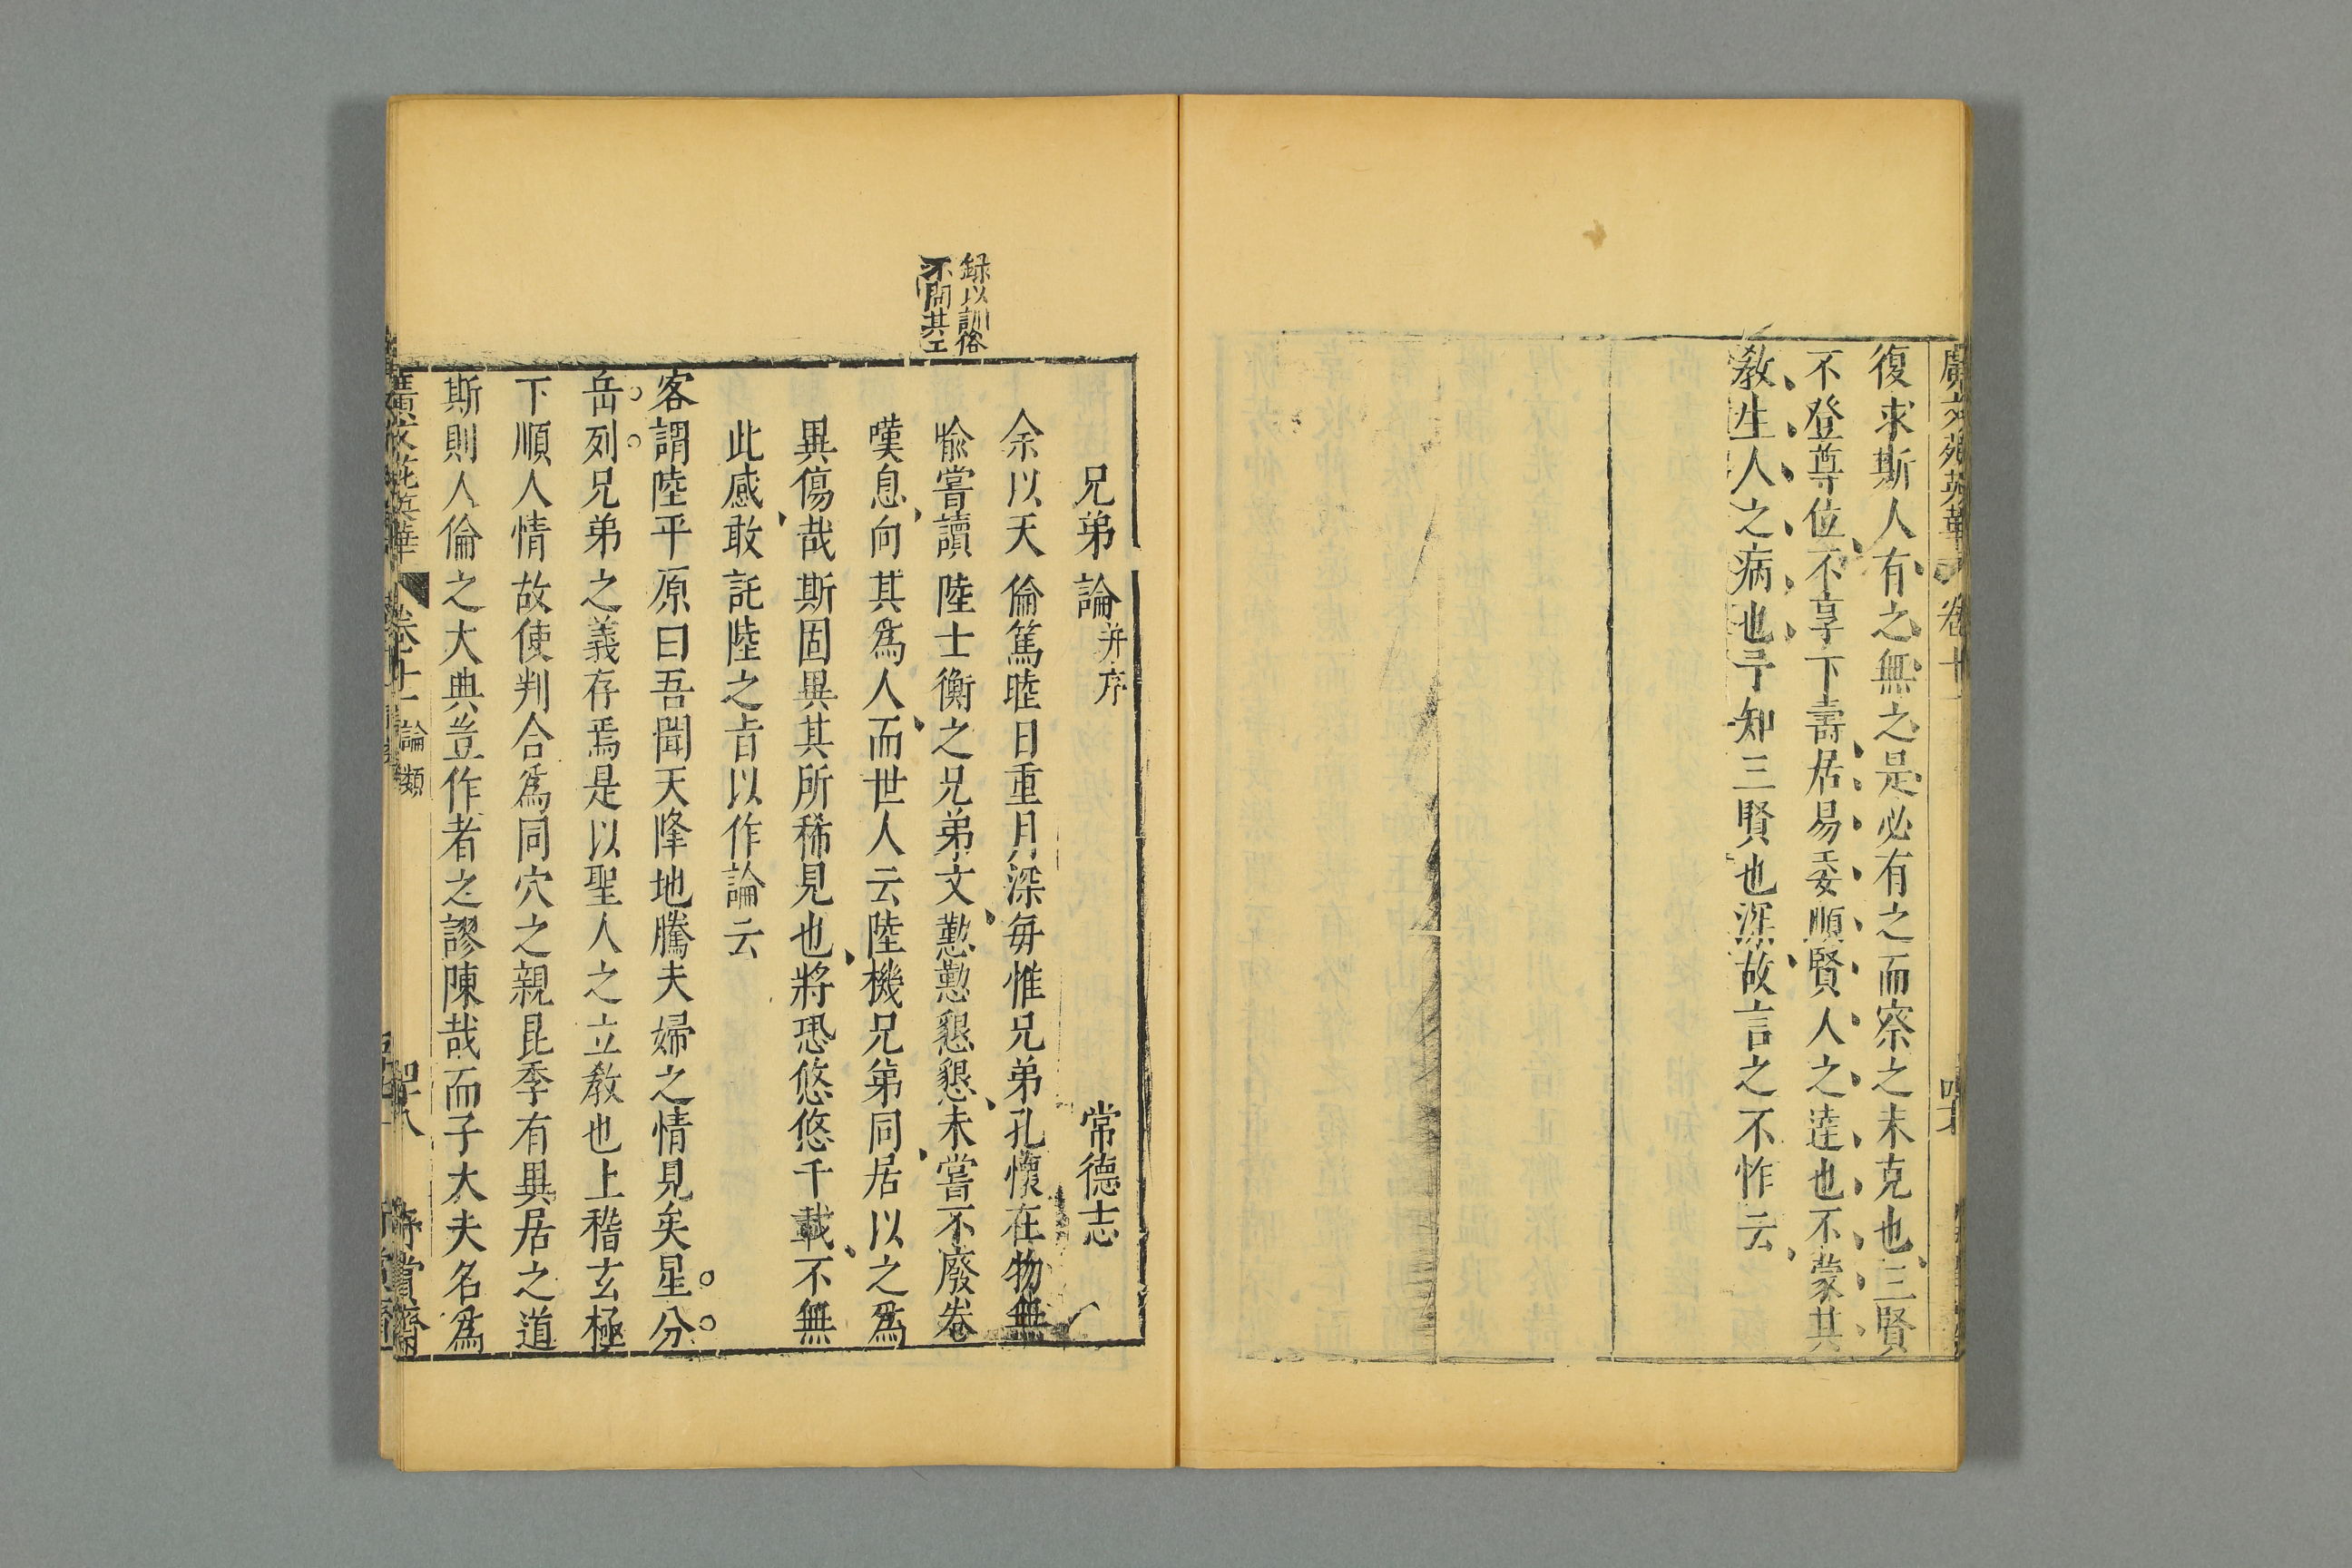 復求斯人有之無之是必有之而察之未克也三賢
不登尊位不享下壽居易委順賢人之達也不蒙其
教生人之病也予知三賢也深故言之不怍云
録以訓俗
不問其工
兄弟論并序 常德志
余以天倫篤睦日重月深每惟兄弟孔懷在物無
喻嘗讀陸士衡之兄弟文懃懃懇懇未嘗不廢卷
嘆息向其爲人而世人云陸機兄弟同居以之爲
異傷哉斯固異其所稀見也將恐悠悠千載不無
此感敢託陸之旨以作論云
客謂陸平原曰吾聞天降地騰夫婦之情見矣星分
岳列兄弟之義存焉是以聖人之立教也上稽玄極
下順人情故使判合爲同穴之親昆季有異居之道
斯則人倫之大典豈作者之謬陳哉而子大夫名爲
廣文苑英華 卷十一 論類